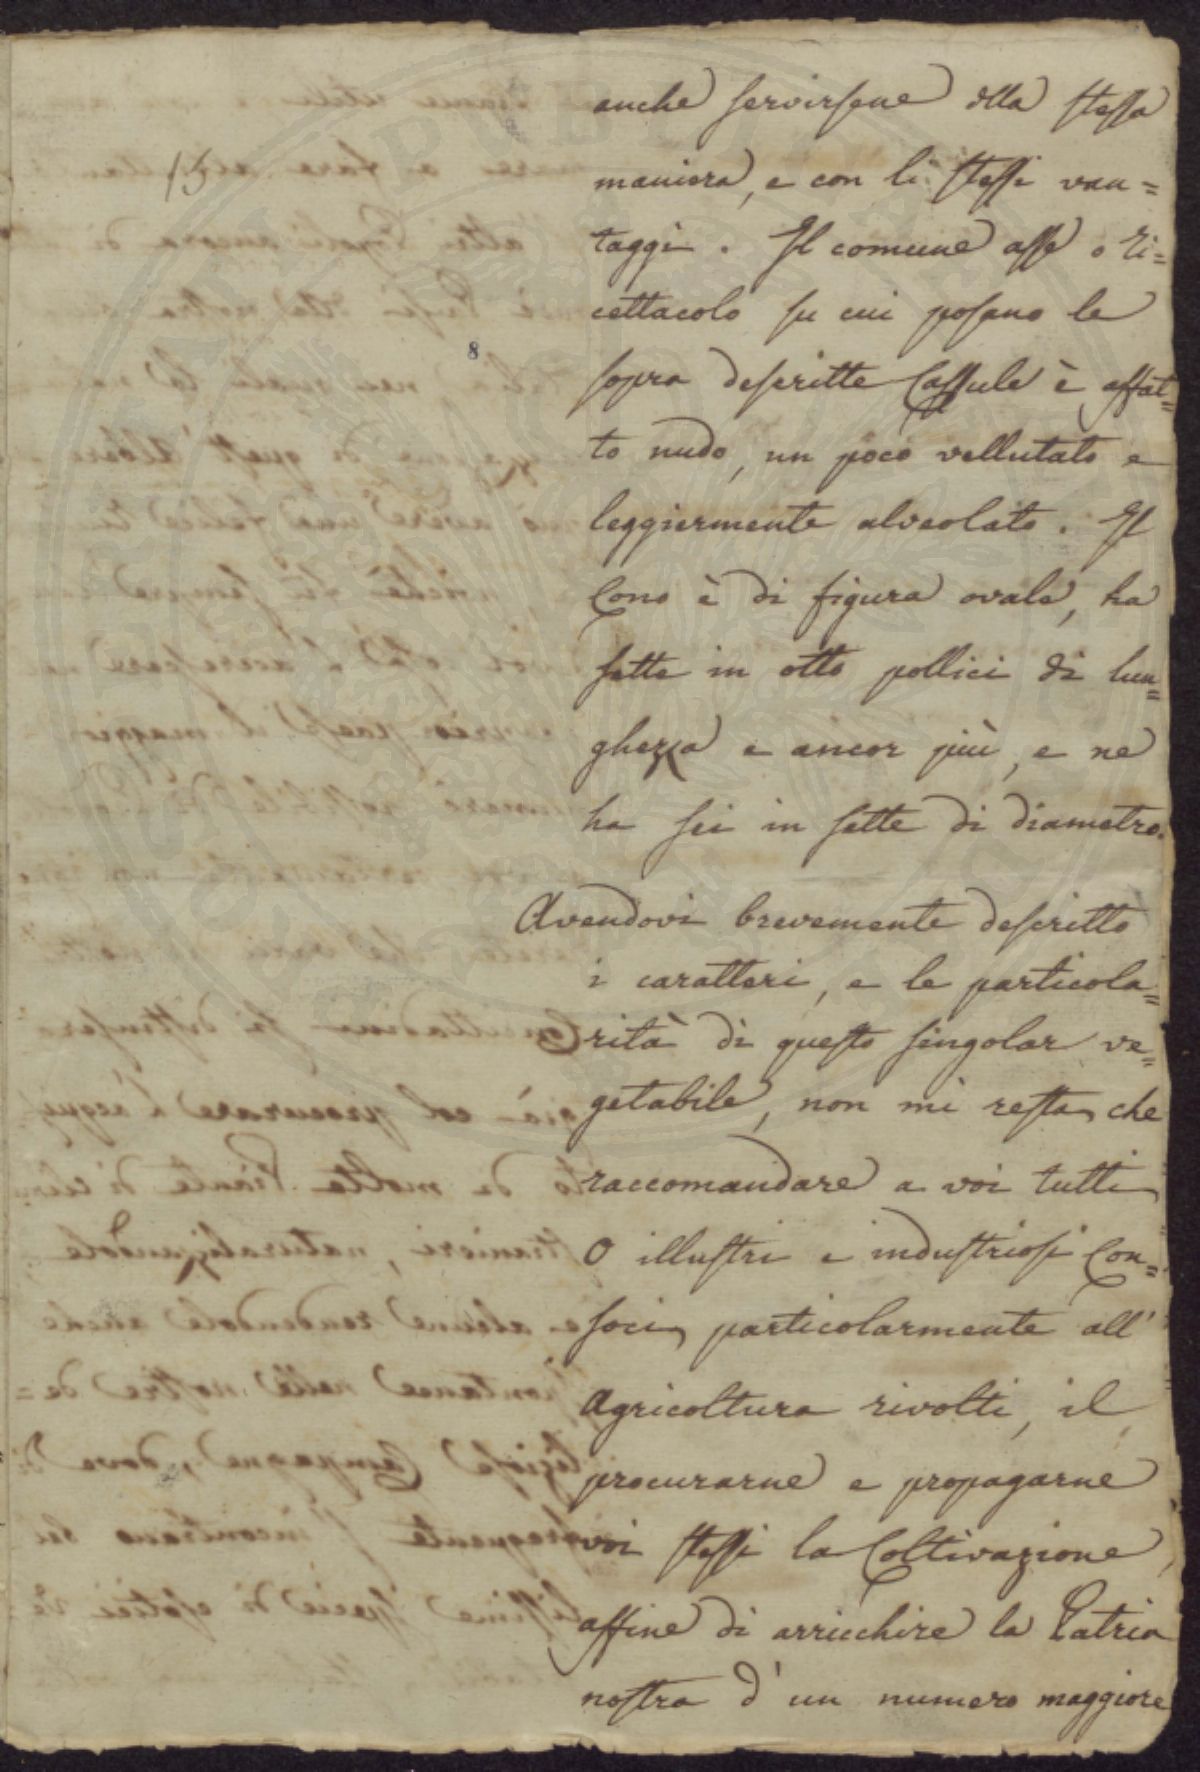 15
8
anche servirsene dlla stessa
maniera, e con li stessi van=
taggi. Il comune asse o ri=
cettacolo su cui posano le
sopra descritte Cassule è affat=
to nudo, un poco vellutato e
leggiermente alveolato. Il
Cono è di figura ovale, ha
sette in otto pollici di lun=
ghezza e ancor più, e ne
ha sei in sette di diametro.
Avendovi brevemente descritto
i caratteri, e le particola=
rità di questo singolar ve=
getabile, non mi resta che
raccomandare a voi tutti
o illustri e industriosi Con=
soci, particolarmente all'
agricoltura rivolti, il
procurarne e propagarne
voi stessi la Coltivazione,
affine di arricchire la Patria
nostra d'un numero maggiore